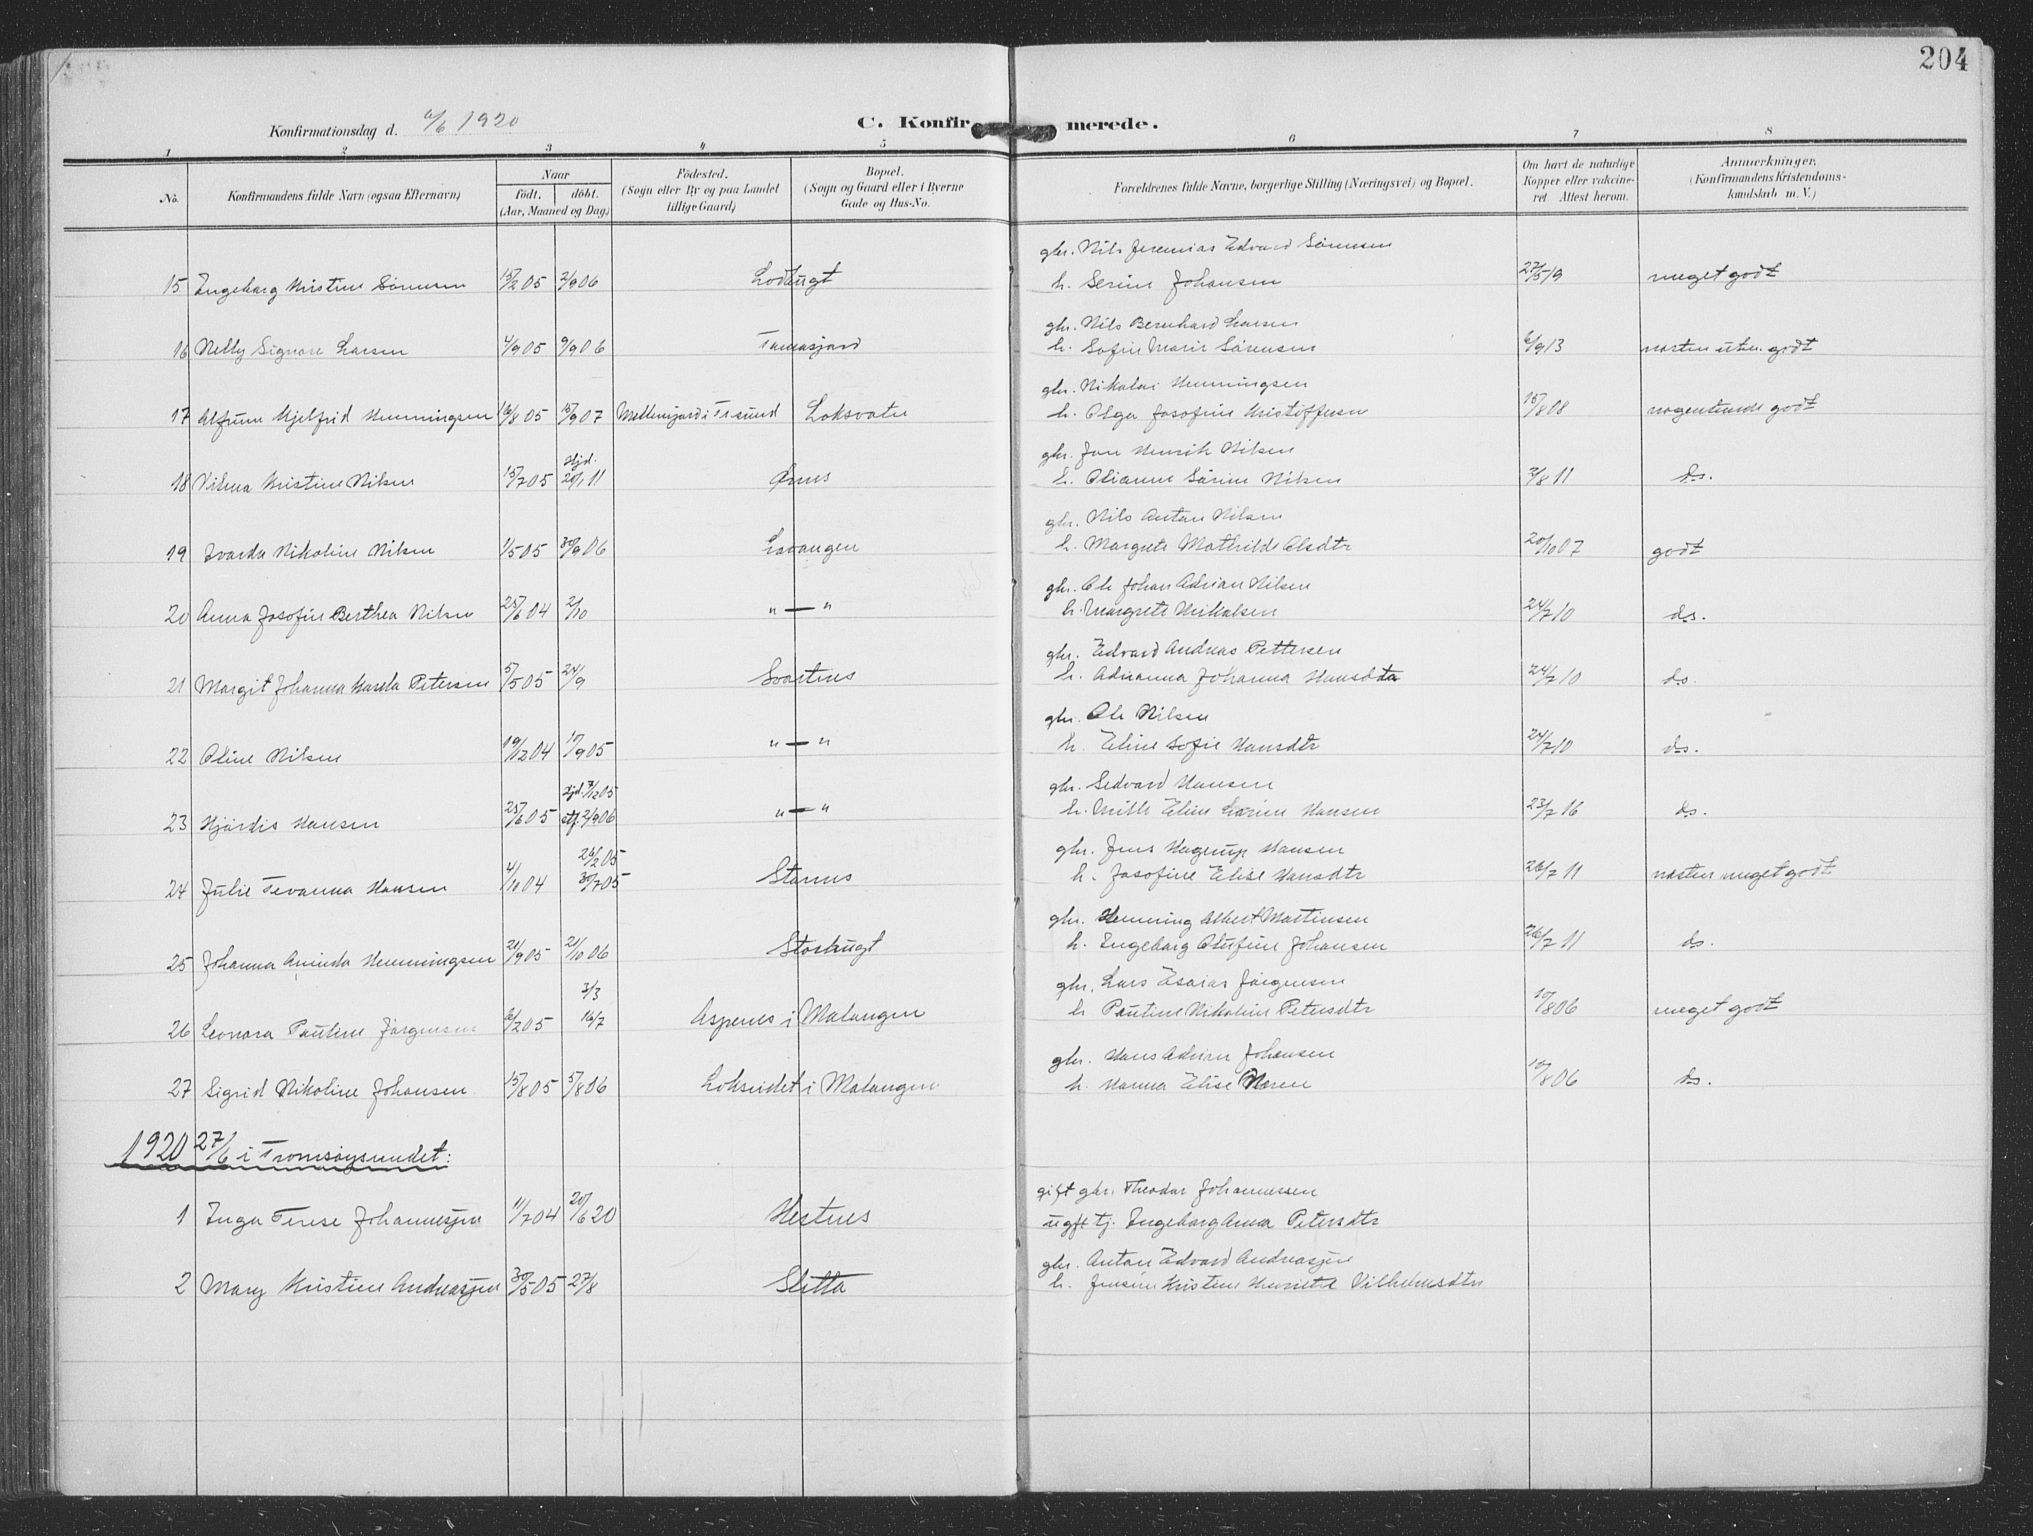 204
Konfirmationsdag d. 6/6 1920
C. Konfirmerede.
1 2 3 4 5 6 7 8
No. Konfirmandens fulde Navn (ogsaa Efternavn)
Naar født. døbt. (Aar, Maaned og Dag)
Fødested. (Sogn eller By og paa Landet tillige Gaard)
Bopæl. (Sogn og Gaard eller i Byerne Gade og Hus-No.
Forældrenes fulde Navne, borgerlige Stilling (Næringsvei) og Bopæl.
Om havt de naturlige Kopper eller vakcineret. Attest herom.
Anmærkninger. (Konfirmandens Kristendomskundskab m. V.)
gbr. Nils Jeremias Edvard Sørensen
15 Ingeborg Kristine Sørensen 15/2 05 2/9 06 h. Serine Johansen 27/5 19 meget godt
gbr. Nils Bernhard Larsen
16 Nelly Signore Larsen 4/9 05 9/9 06 h. Sofie Marie Sørensen 6/9 13 næsten godt
gbr. Nikolai Henningsen
17 Hjelfrid Henningsen 16/8 05 15/9 07 h. Olga Josofine Kristoffersen 15/8 08 nogenlunde godt
gbr. Jon Henrik Nilsen
18 Vilma Kristine Nilsen 15/7 05 Hjd. 20/1 11 h. Olianne Sørine Nilsen 2/8 11 ds.
gbr. Nils Anton Nilsen
19 Ivarda Nikoline Nilsen 1/5 05 30/9 06 Lavangen h. Margrete Mathilde Olsdtr 20/10 07 godt
gbr. Ole Johan Adrian Nilsen
20 Anna Josofine Berthea Nilsen 25/6 04 2/10 " — " h. Margrete Mikalsen 24/7 10 ds.
gbr. Edvard Andreas Pettersen
21 Margit Johanna Petersen 5/5 05 24/9 Svartnes h. Adrianna Johanna Hansdtr 24/7 10 ds.
gbr. Ole Nilsen
22 Oline Nilsen 19/12 04 17/9 05 " — " h. Eline Sofie Hansdtr 24/7 10 ds.
gbr. Sedvard Hansen
23 Hjørdis Hansen 25/6 05 Hjd. 3/12 05 stf. 2/9 06 " — " h. Eline Hansen 23/7 16 ds.
gbr. Jens Hagerup Hansen
24 Julie Hansen 4/10 04 26/2 05 30/7 05 h. Josofine Elise Hansdtr 26/7 11 næsten meget godt
gbr. Henning Albert Martinsen
25 Johanna Aminda Henningsen 21/9 05 21/10 06 Storbugt h. Ingeborg Olufine Johansen 26/7 11 ds.
gbr. Lars Esaias Jørgensen
26 Leonora Pauline Jørgensen 6/2 05 3/3 16/7 Aspenes i Malangen h. Pauline Nikoline Petersdtr 10/8 06 meget godt
gbr. Hans Adrian Johansen
27 Sigrid Nikoline Johansen 15/8 05 5/8 06 Lokseidet i Malangen h. Hanna Elise 10/8 06 ds.
1920 27/6 i Tromsøysundet:
gift gbr. Theodor Johannessen
1 Inga Terese Johannesjen 11/7 04 20/6 20 Hestnes ugift tj. Ingeborg Anna Petersdtr
gbr. Anton Edvard Andreasjen
2 Mary Kristine Andreasjen 30/5 05 27/8 Sletta h. Jensine Kristine Henriette Vilhelmsdtr